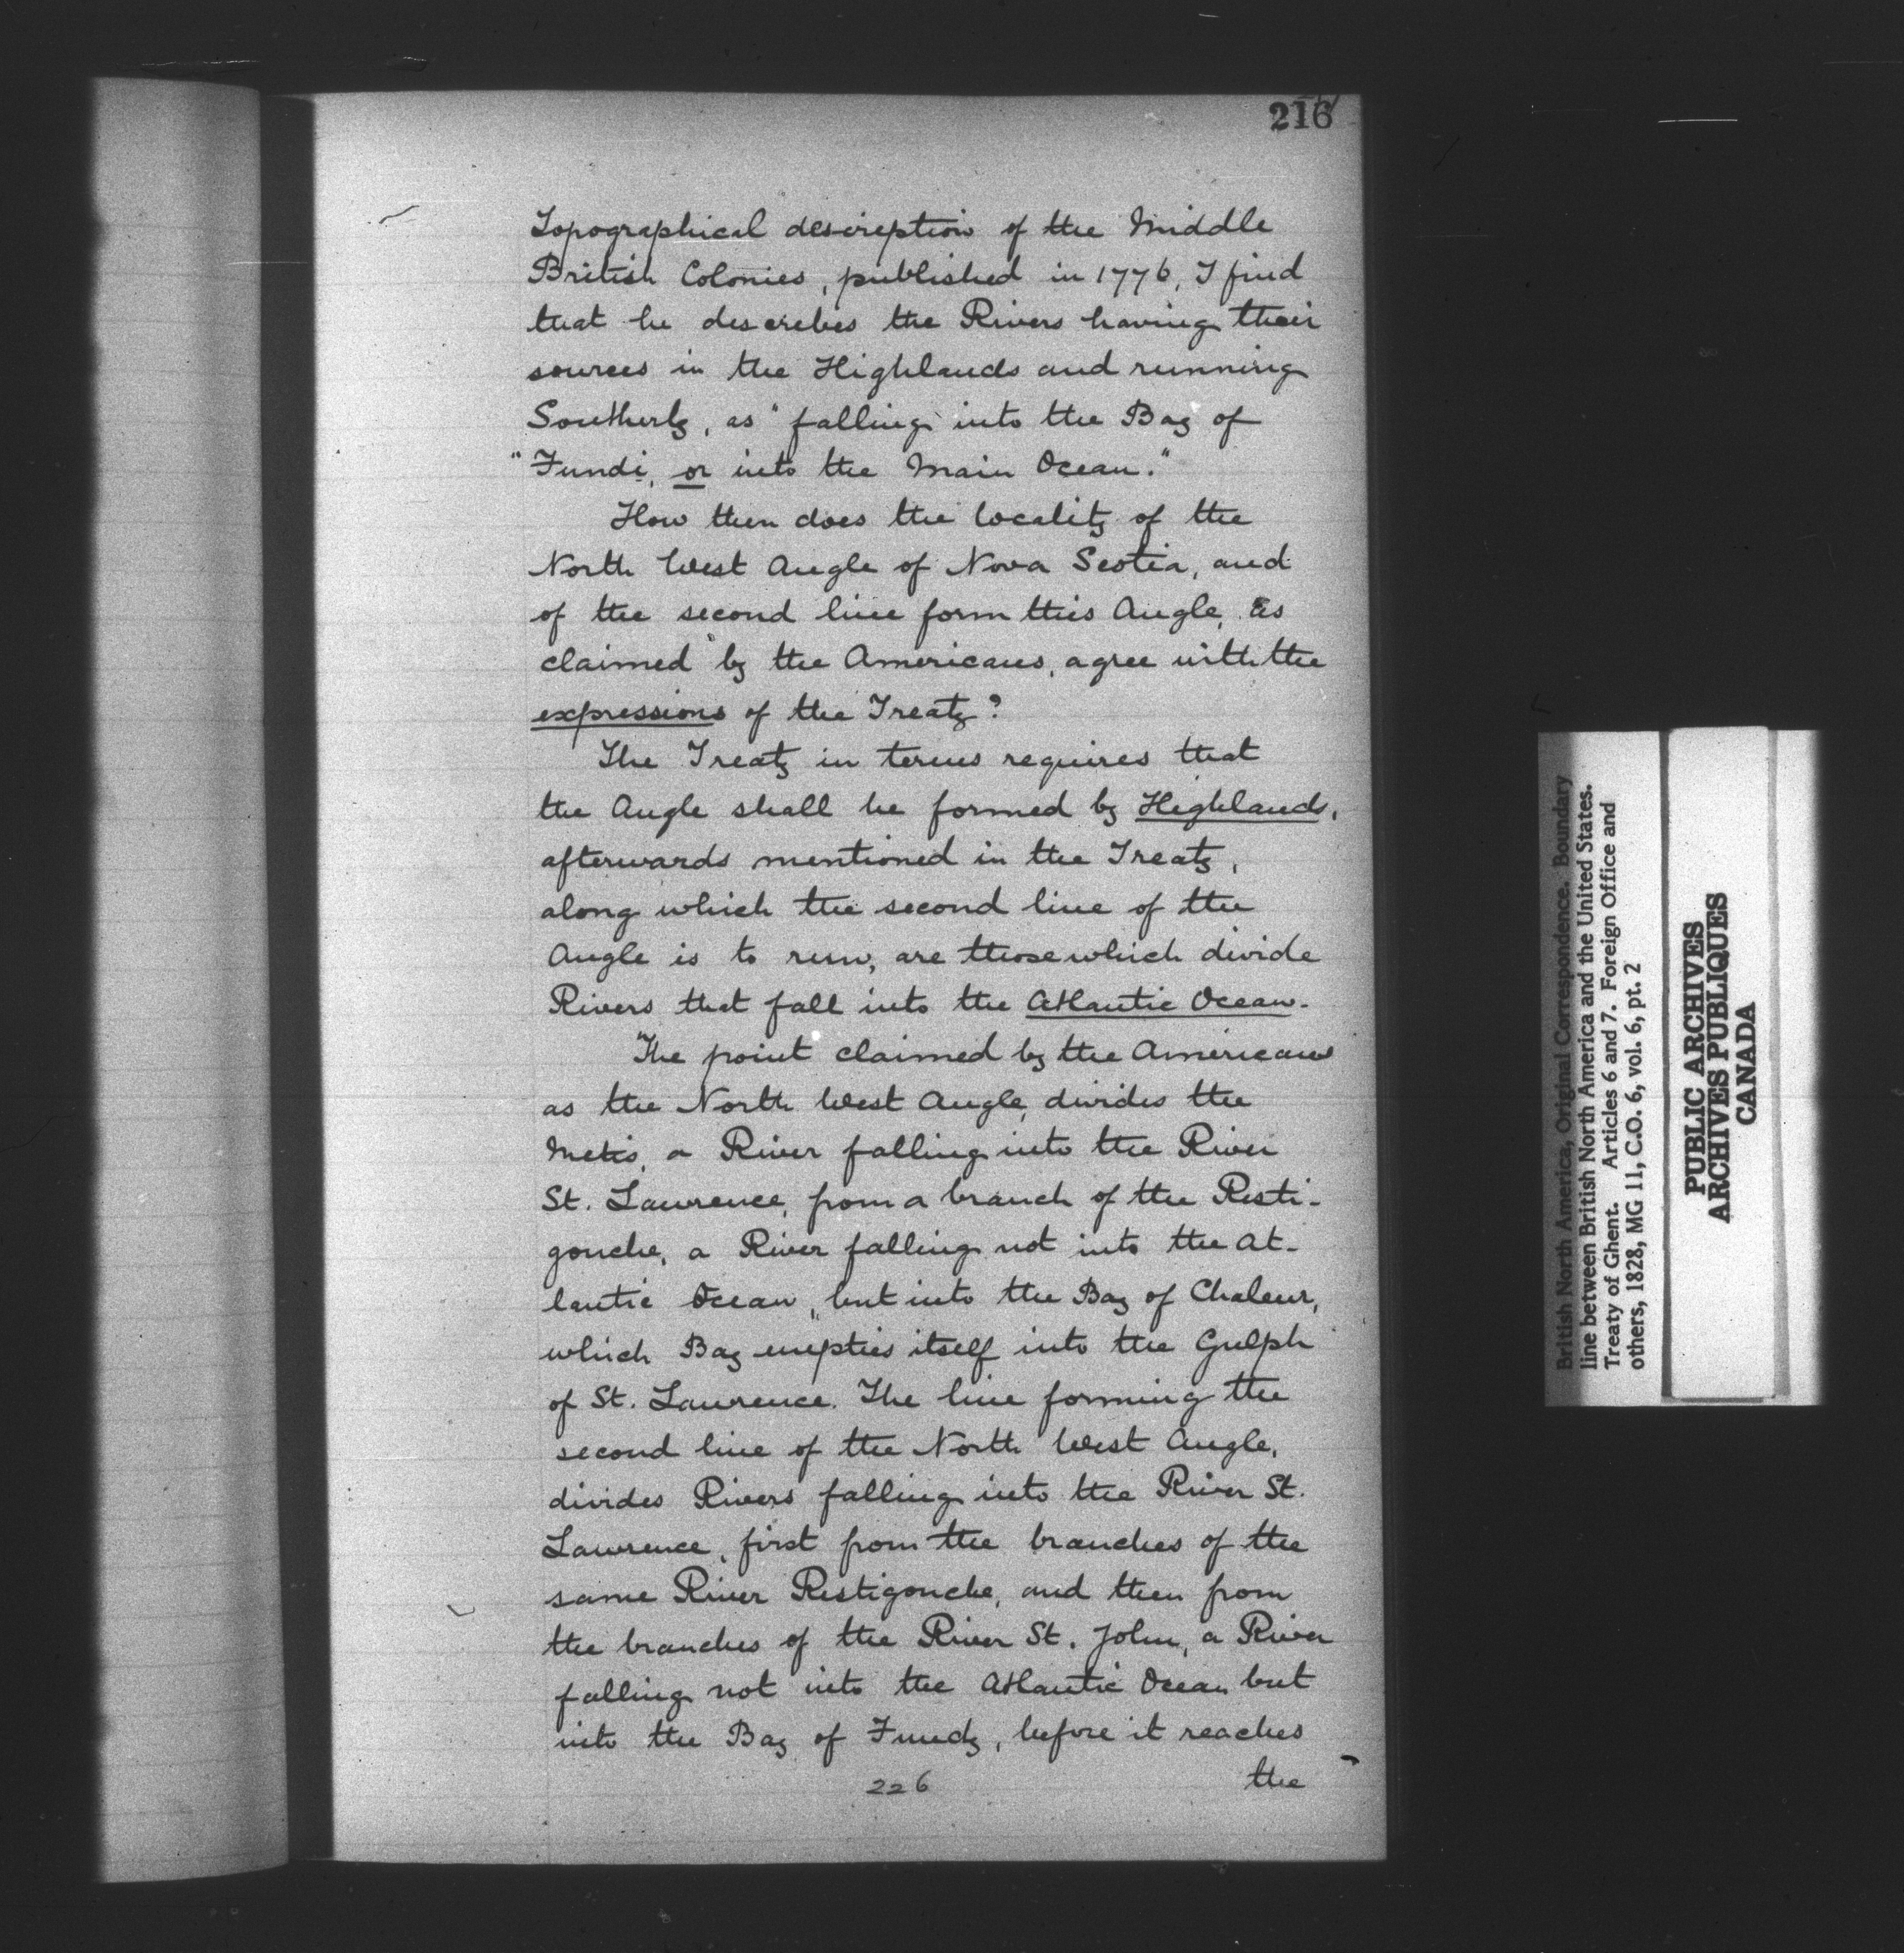 216
Topographical description of the Middle
British Colonies, published in 1776, I find
that he describes the Rivers having their
sources in the Highlands and running
Southerly, as "falling into the Bay of
"Fundi, or into the Main Ocean."
How then does the locality of the
North West Angle of Nova Scotia, and
of the second line form this Angle, as
claimed by the Americans, agree with the
expressions of the Treaty?
The Treaty in terms requires that
the Angle shall be formed by Highlands,
afterwards mentioned in the Treaty,
along which the second line of the
Angle is to run, are those which divide
Rivers that fall into the Atlantic Ocean.
The point claimed by the Americans
as the North West Angle, divides the
Metis, a River falling into the River
St. Lawrence, from a branch of the Resti-
gouche, a River falling not into the At-
lantic Ocean, but into the Bay of Chaleur,
which Bay empties itself into the Gulph
of St. Lawrence. The line forming the
second line of the North West Angle,
divides Rivers falling into the River St.
Lawrence, first from the branches of the
same River Restigouche, and then from
the branches of the River St. John, a River
falling not into the Atlantic Ocean but
into the Bay of Fundy, before it reaches
226 the
British North America, Original Correspondence. Boundary
line between British North America and the United States.
Treaty of Ghent. Articles 6 and 7. Foreign Office and
others, 1828, MG 11, C.O. 6, vol. 6, pt. 2
PUBLIC ARCHIVES
ARCHIVES PUBLIQUES
CANADA